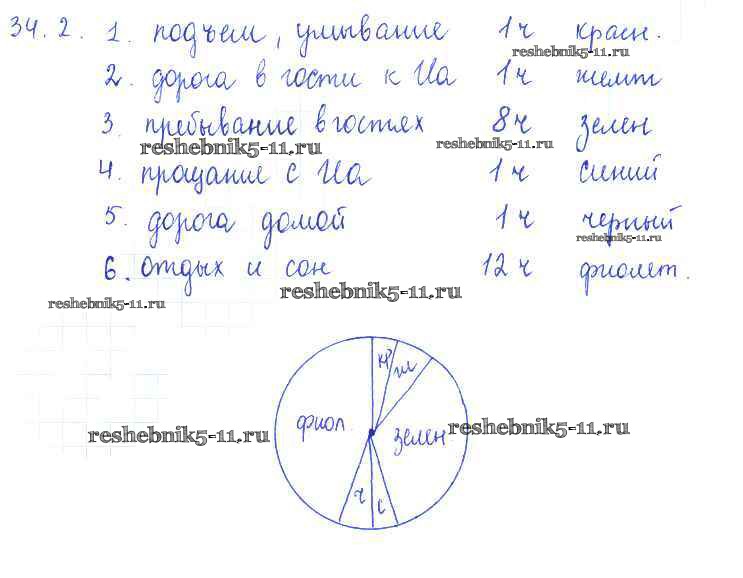 34.2. 1. подъем, умывание 1ч красн.
reshebnik5-11.ru
2. дорога в гости к Иа 1ч желт
3. пребывание в гостях 8ч зелен
reshebnik5-11.ru reshebnik5-11.ru
4. прощание с Иа 1ч синий
5. дорога домой 1ч черный
reshebnik5-11.ru
6. отдых и сон 12ч фиолет.
reshebnik5-11.ru
reshebnik5-11.ru
к ж
фиол. зелен
reshebnik5-11.ru reshebnik5-11.ru
ч с